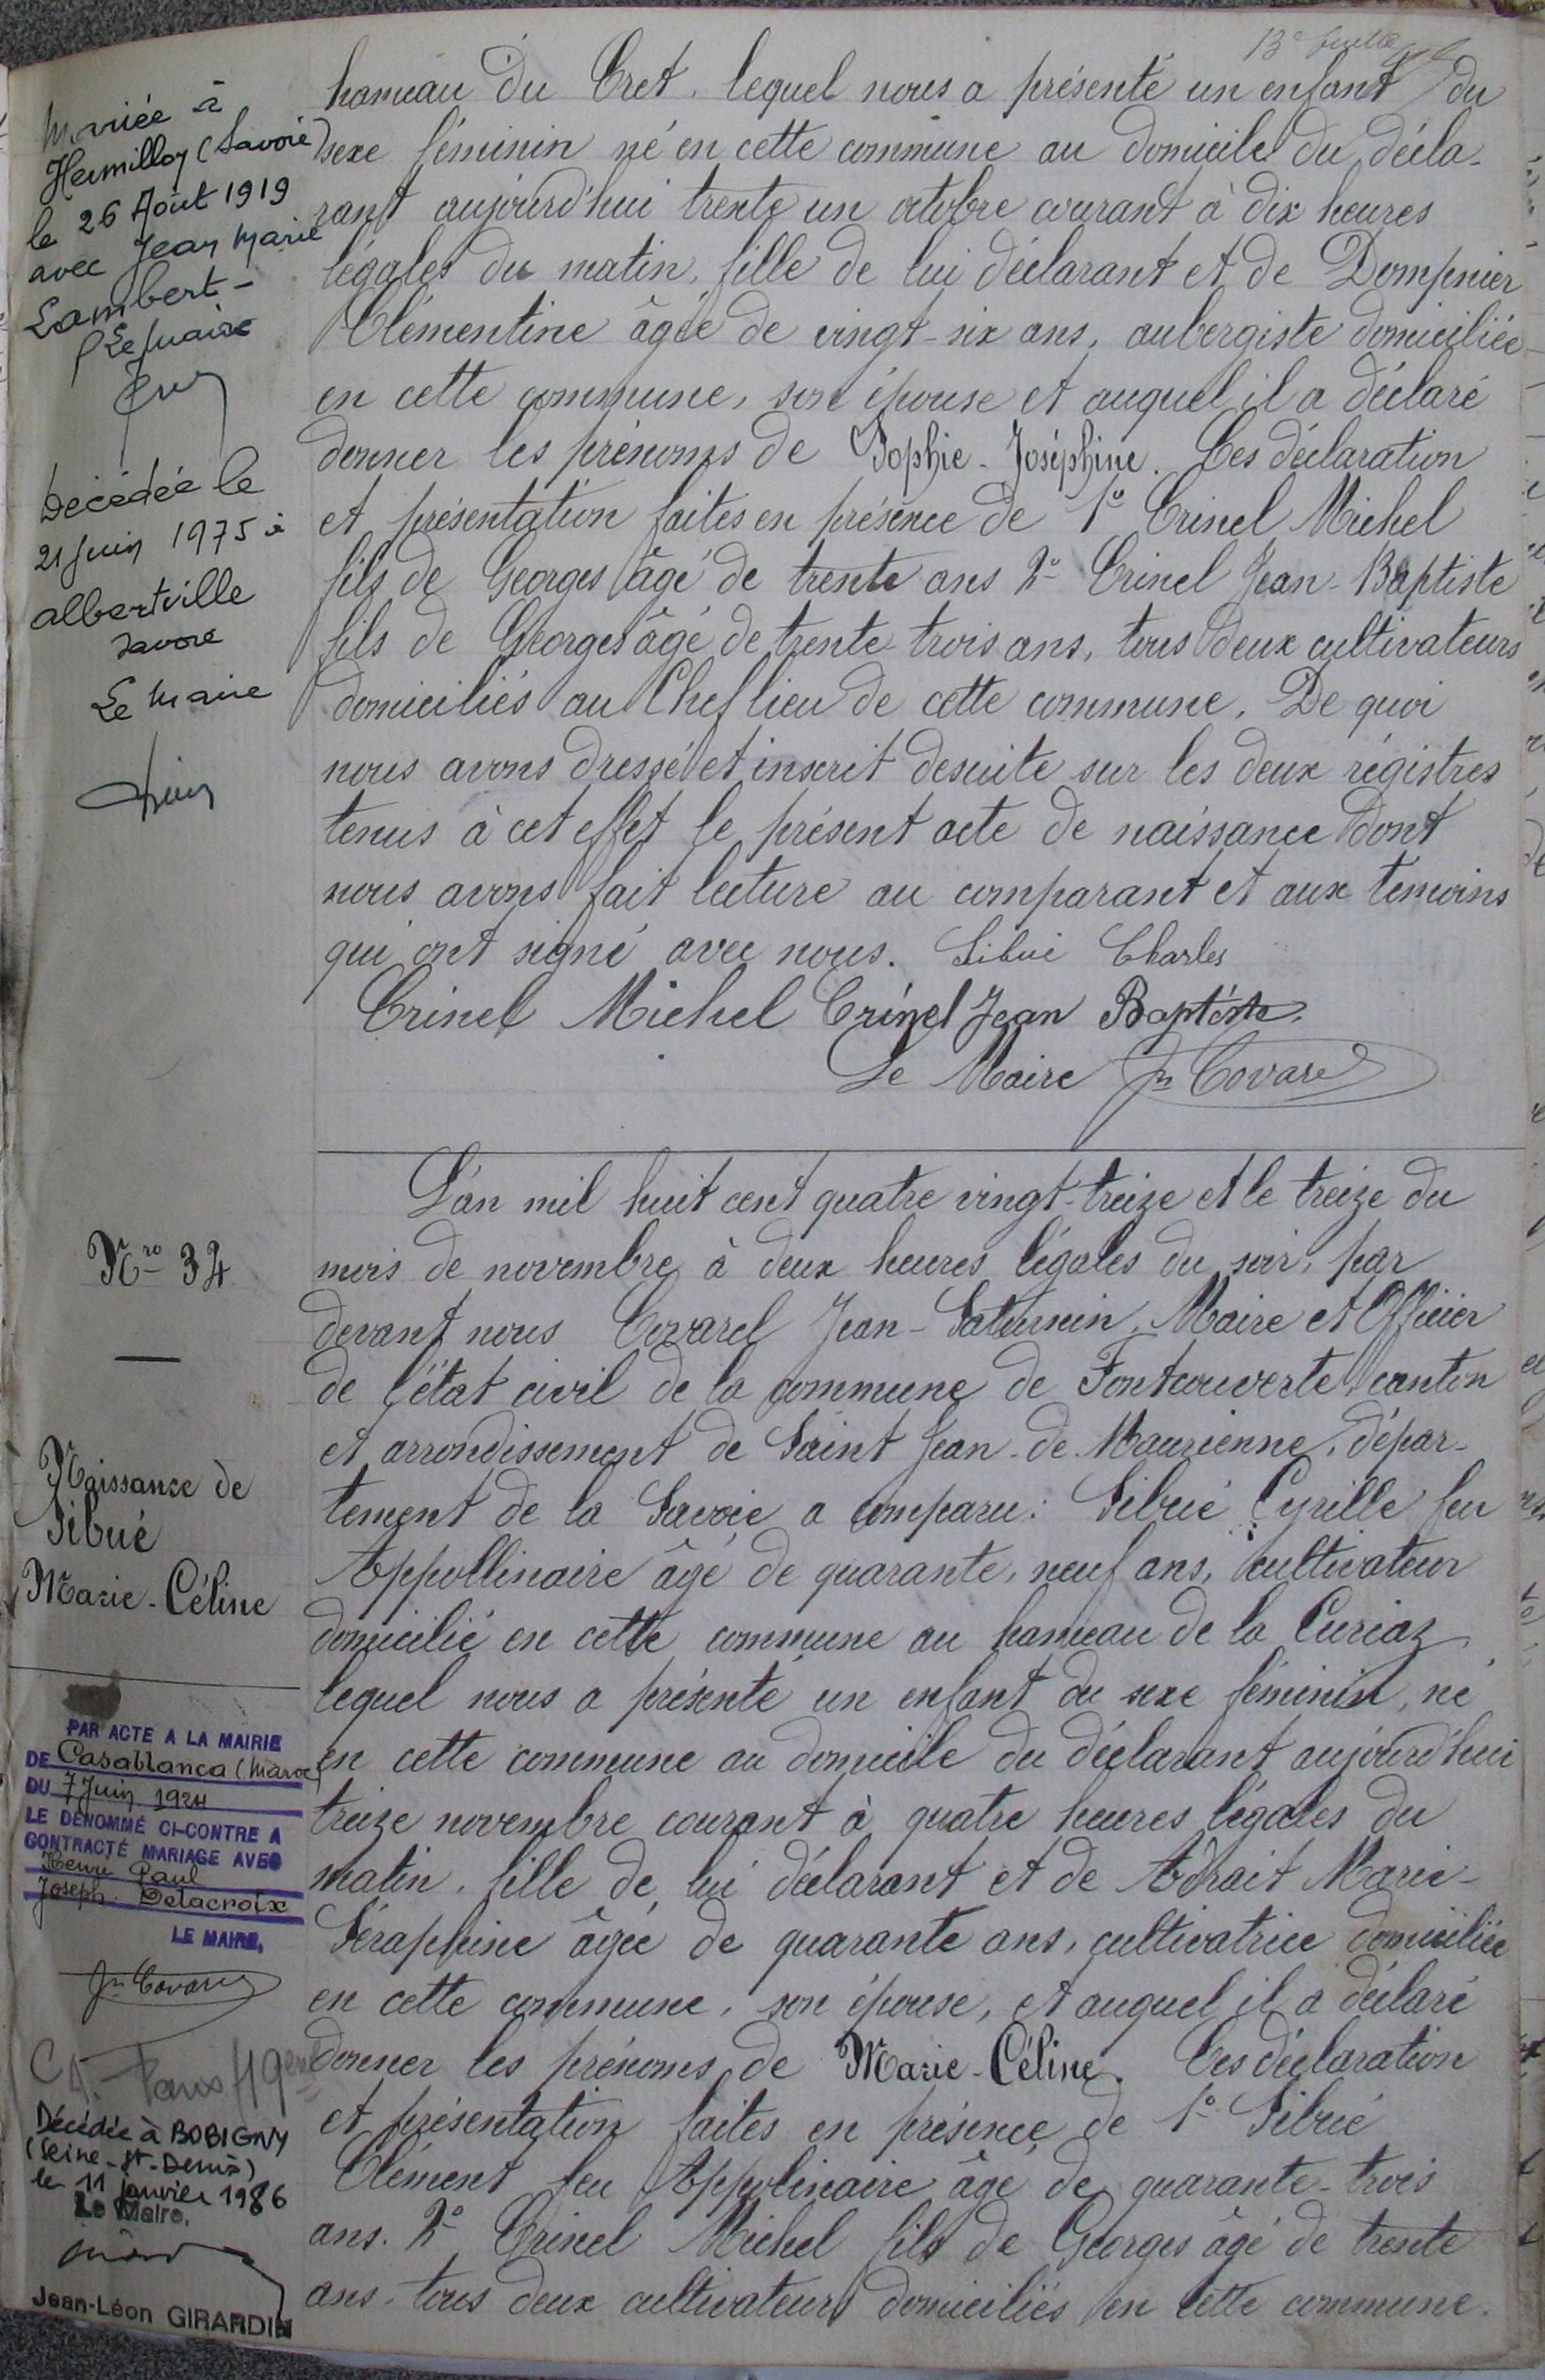 13e
hameau du Cret, lequel nous a présenté un enfant du
sexe féminin né en cette commune au domicile du décla-
rant aujourd'hui trente un octobre courant à dix heures
légales du matin, fille de lui déclarant et de Dompnier
Clémentine âgée de vingt-six ans, aubergiste domiciliée
en cette commune, son épouse et auquel il a déclaré
donner les prénoms de Sophie-Joséphine. Ces déclaration
et présentation faites en présence de 1º Crinel Michel
fils de Georges âgé de trente ans 2º Crinel Jean-Baptiste
fils de Georges âgé de trente trois ans, tous deux cultivateurs
domiciliés au Chef lieu de cette commune. De quoi
nous avons dressé et inscrit desuite sur les deux régistres
tenus à cet effet le présent acte de naissance dont
nous avons fait lecture au comparant et aux temoins
qui ont signé avec nous. Sibué Charles
Crinel Michel Crinel Jean Baptiste
Le Maire Jn Covarel
Mariée à
Hermillon (Savoie)
le 26 Août 1919
avec Jean Marie
Lambert-
Le maire
Décédée le
21 juin 1975 à
albertville
savoie
Le maire
Nro 34
Naissance de
Sibué
Marie-Céline
L'an mil huit cent quatre vingt-treize et le treize du
mois de novembre à deux heures légales du soir, par
devant nous Covarel Jean-Saturnin, Maire et Officier
de l'état civil de la commune de Fontcouverte, canton
et arrondissement de Saint Jean-de-Maurienne, dépar-
tement de la Savoie a comparu: Sibué Cyrille feu
Appollinaire âgé de quarante, neuf ans, cultivateur
domicilié en cette commune au hameau de la Curiaz
lequel nous a présenté un enfant du sexe féminin, né
en cette commune au domicile du déclarant aujourd'hui
treize novembre courant à quatre heures légales du
matin, fille de lui déclarant et de Adrait Marie-
Séraphine âgée de quarante ans, cultivatrice domiciliée
en cette commune, son épouse, et auquel il a déclaré
donner les prénoms de Marie-Céline. Ces déclaration
et présentation faites en présence de 1º Sibué
Clément feu Appolinaire âgé de quarante-trois
ans. 2º Crinel Michel fils de Georges âgé de trente
ans, tous deux cultivateurs domiciliés en cette commune.
PAR ACTE A LA MAIRIE
DE Casablanca (Maroc)
DU 7 Juin 1924
LE DÉNOMMÉ CI-CONTRE A
CONTRACTÉ MARIAGE AVEC
Henri Paul
Joseph Delacroix
LE MAIRE,
Jn Covarel
Paris 19
Décédée à BOBIGNY
(Seine-St-Denis)
le 11 janvier 1986
Le Maire,
Jean-Léon GIRARDIN